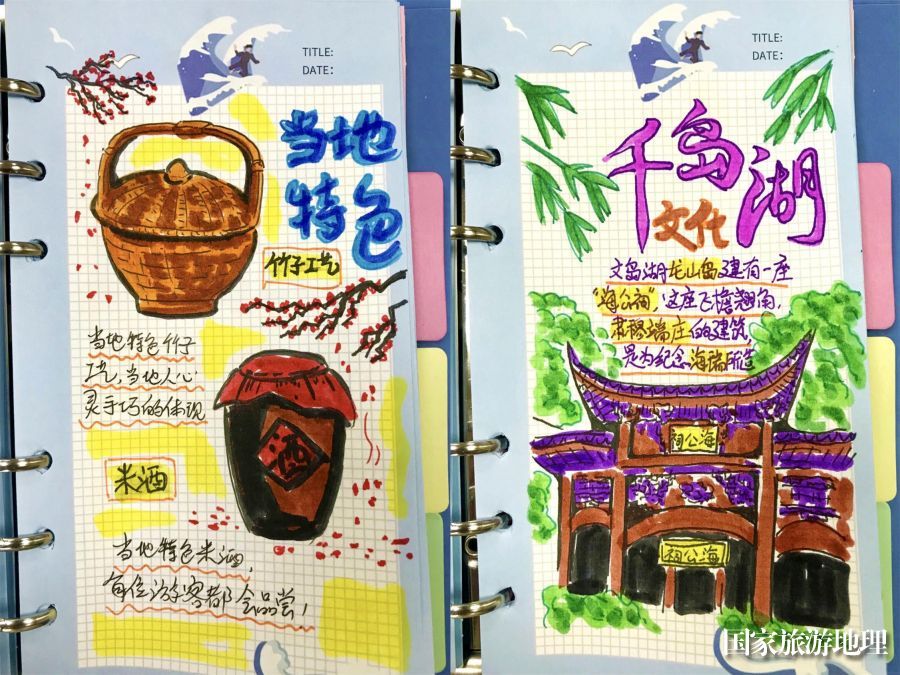 TITLE:
DATE:
当地
特色
竹子工艺
当地特色竹子
工艺,当地人心
灵手巧的体现
酒
米酒
当地特色米酒,
每位游客都会品尝!
TITLE:
DATE:
千岛湖
文化
文岛湖龙山岛建有一座
“海公祠”,这座飞檐翘角,
肃穆端庄的建筑,
是为纪念海瑞所造
祠公海
祠公海
国家旅游地理